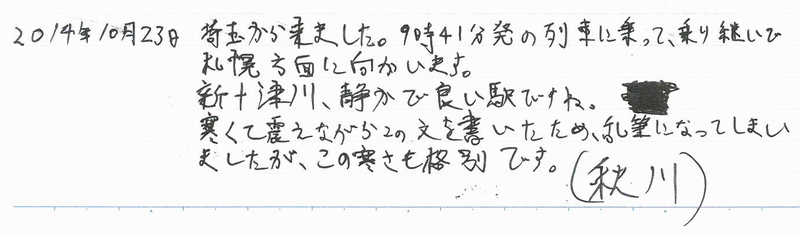 2014年10月23日 埼玉から来ました。9時41分発の列車に乗って、乗り継いで
札幌方面に向かいます。
新十津川、静かで良い駅ですね。
寒くて震えながらこの文を書いたため、乱筆になってしまい
ましたが、この寒さも格別です。
(秋川)